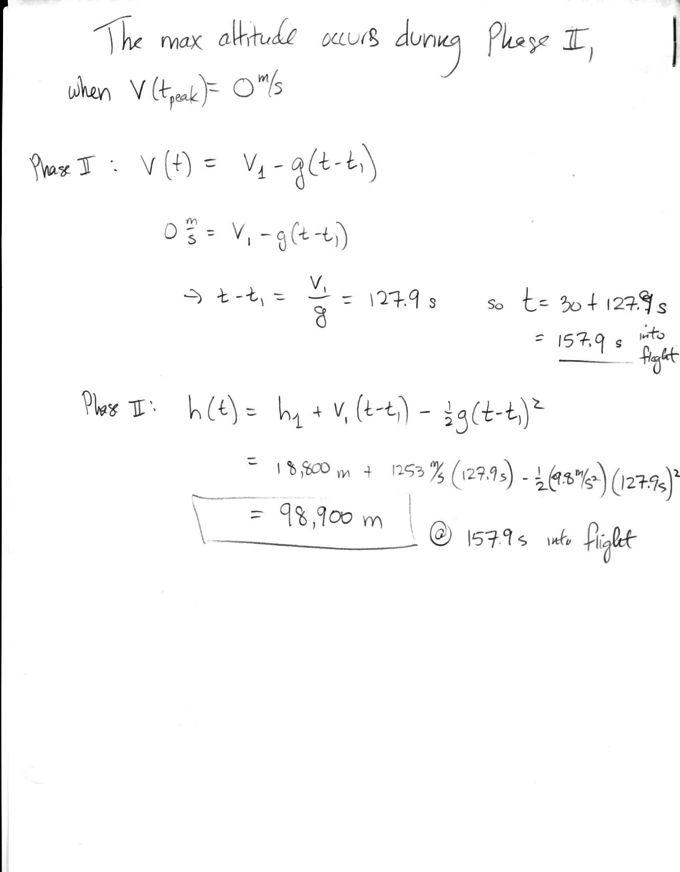 The max altitude occurs during Phase II,
when V(t_peak) = 0 m/s
Phase II : V(t) = V₁ - g(t-t₁)
0 m/s = V₁ - g(t-t₁)
→ t-t₁ = V₁/g = 127.9 s so t = 30 + 127.9 s
= 157.9 s into flight
Phase II : h(t) = h₁ + V₁(t-t₁) - ½g(t-t₁)²
= 18,800 m + 1253 m/s (127.9s) - ½(9.8 m/s²)(127.9s)²
= 98,900 m
@ 157.9 s into flight